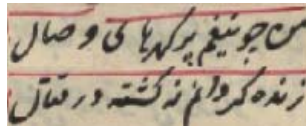 من چو تیغم پر گهرهای وصال
زنده گردانم نه کشته در قتال